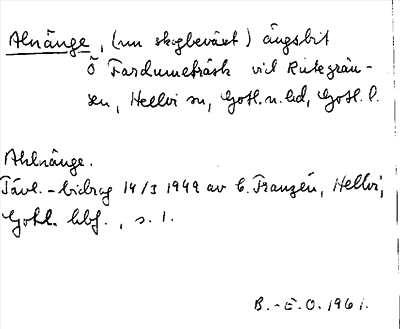 Alnänge, (nu skogbeväxt) ängsbit
Ö Fardumeträsk vid Rutegrän-
sen, Hellvi sn, Gotl. n. hd, Gotl. l.
Ahlnänge.
Tävl.-bidrag 14/3 1949 av C. Franzén, Hellvi,
Gotl. hbf., s. 1.
B.-E. O. 1961.